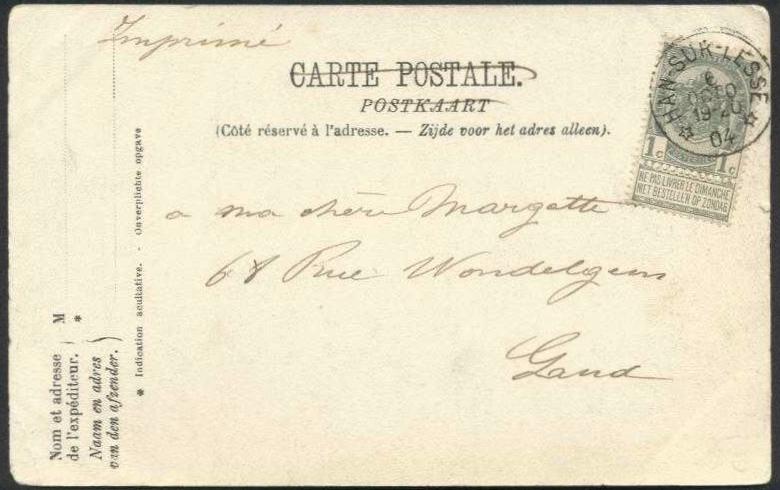 Imprimé
CARTE POSTALE.
POSTKAART
(Côté réservé à l'adresse. — Zijde voor het adres alleen).
HAN-SUR-LESSE
6
04
1c 1c
NE PAS LIVRER LE DIMANCHE
NIET BESTELLEN OP ZONDAG
a ma chère Margotte
68 Rue Wondelgem
Gand
Nom et adresse
de l'expéditeur. } M
Naam en adres
van den afzender. } *
* Indication facultative. - Onverplichte opgave